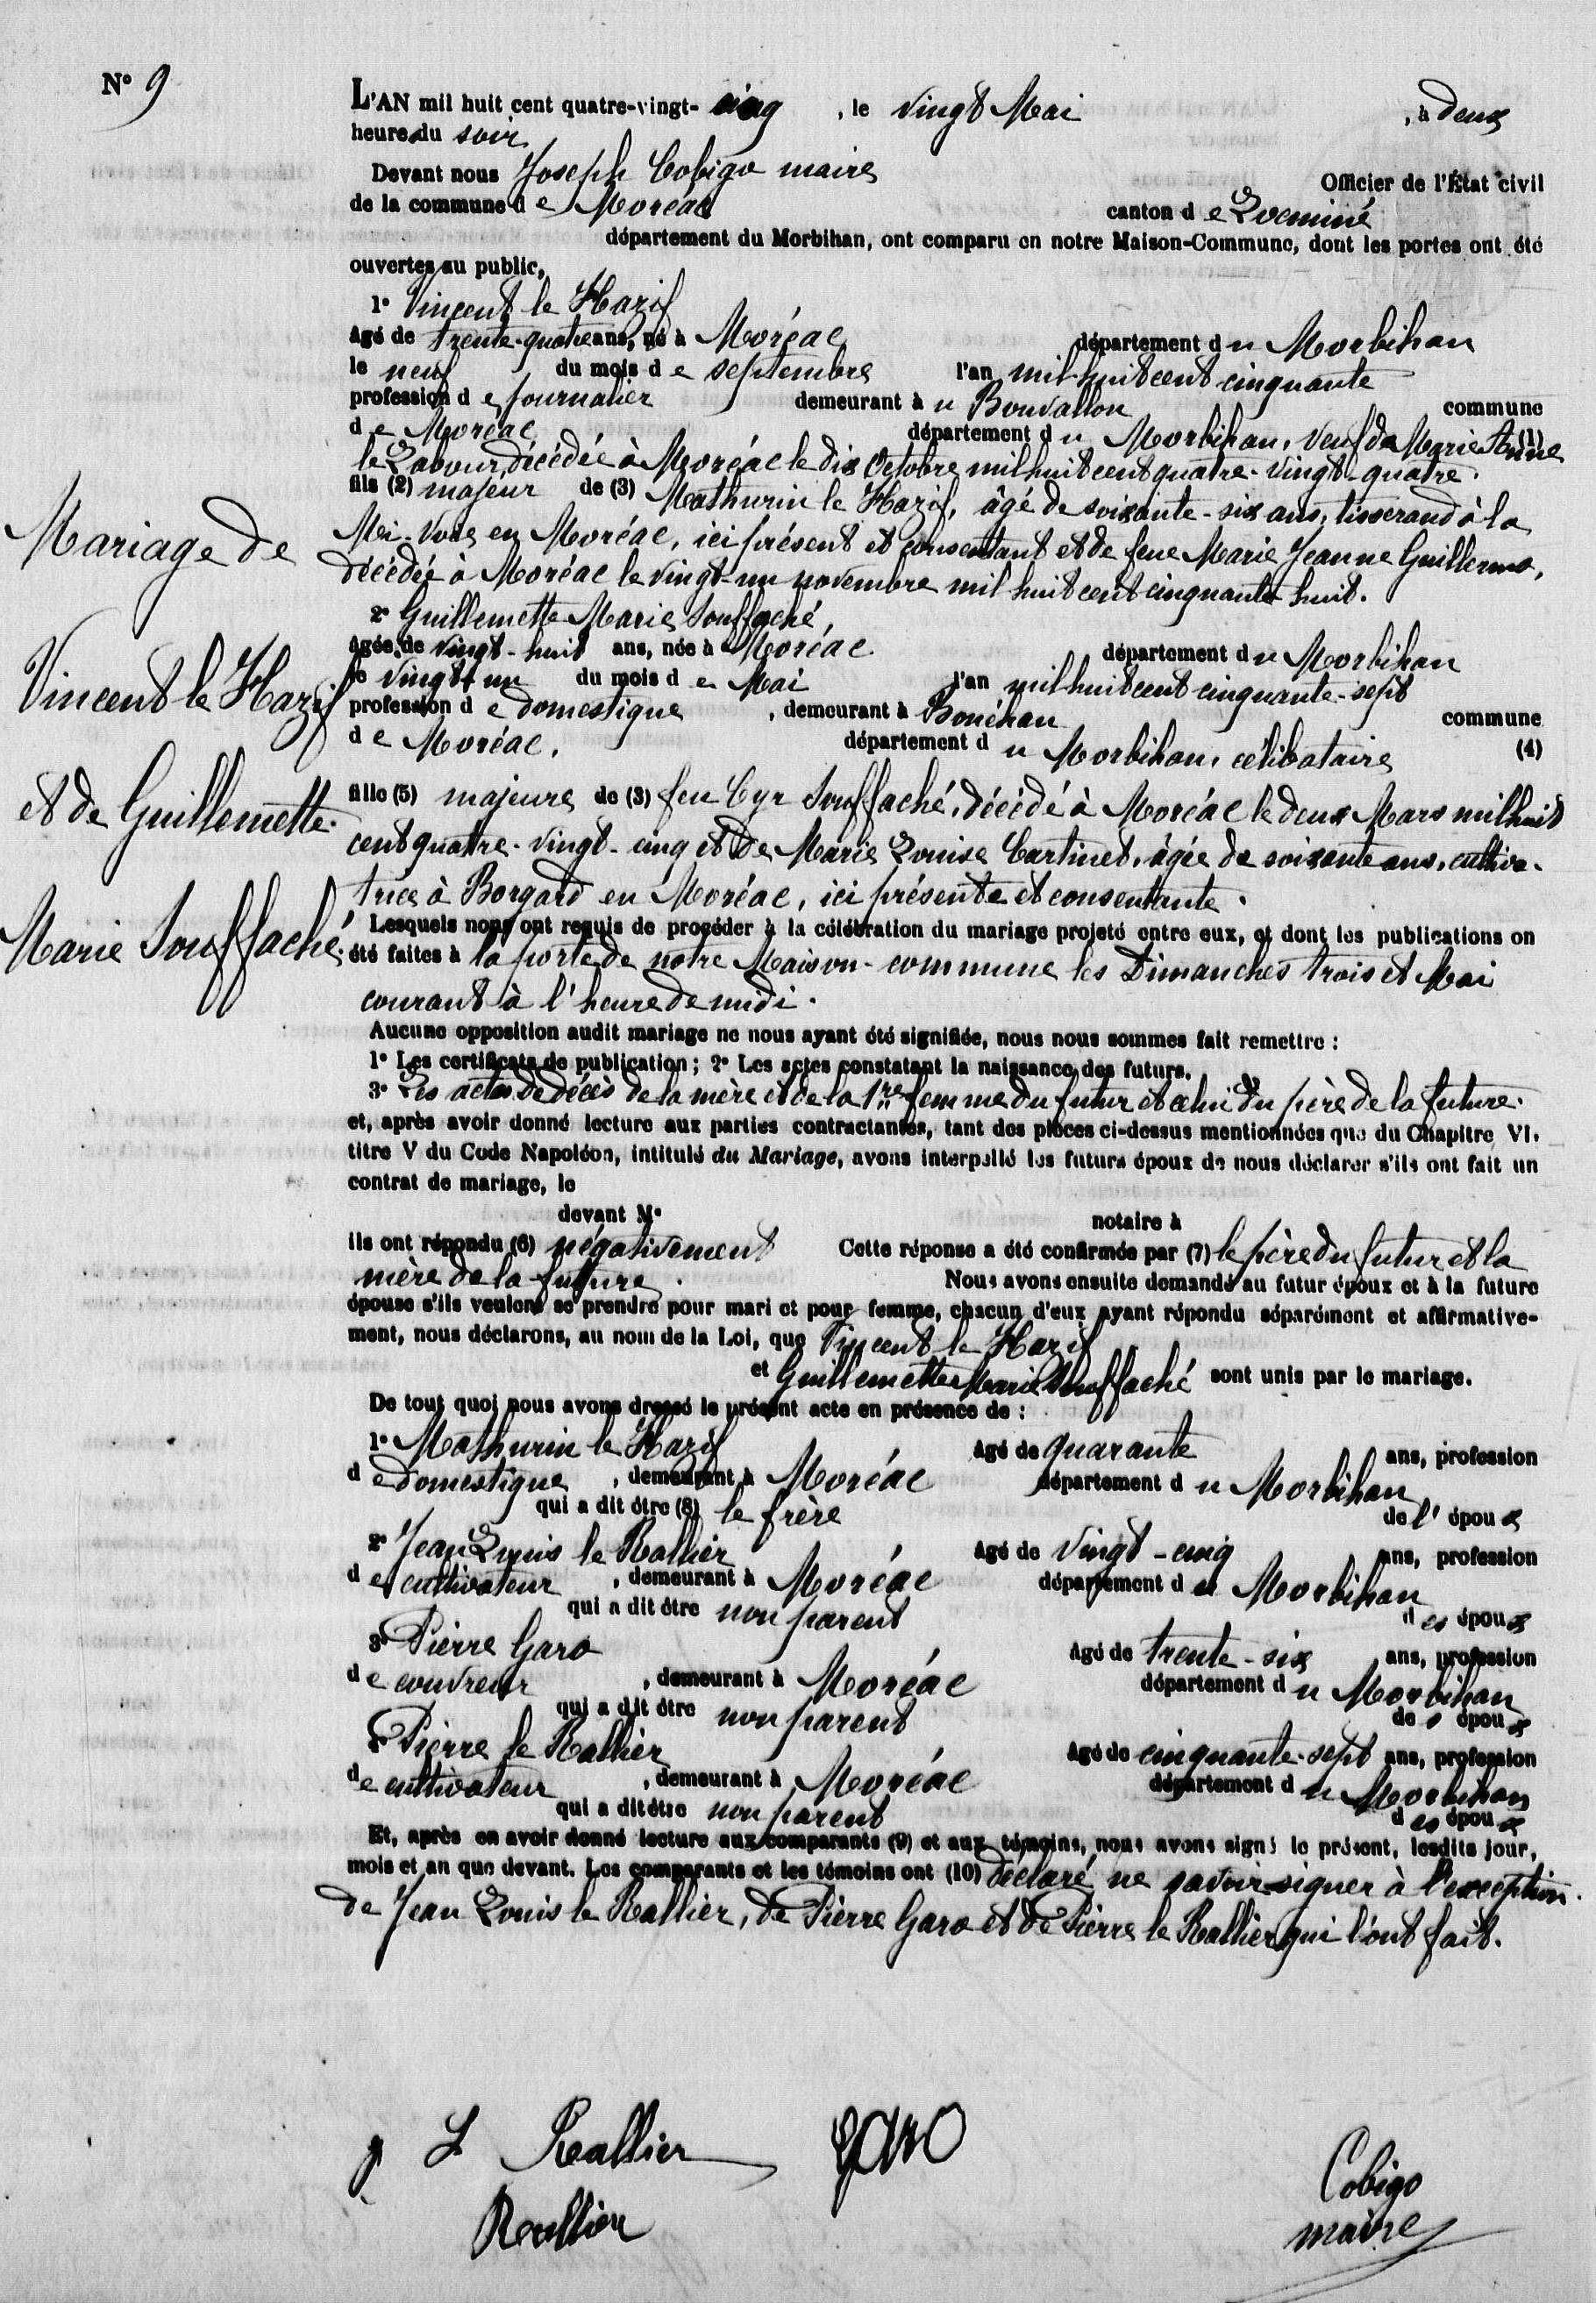 N° 9
L'AN mil huit cent quatre-vingt-cinq, le vingt Mai, à deux
heures du soir
Devant nous Joseph Cobigo maire Officier de l'État civil
de la commune de Moréac canton de Locminé
département du Morbihan, ont comparu en notre Maison-Commune, dont les portes ont été
ouvertes au public,
1° Vincent le Hazif
Agé de trente-quatre ans, né à Moréac département du Morbihan
le neuf du mois de septembre l'an mil huit cent cinquante
profession de journalier demeurant à u Bouvallon commune
de Moréac département du Morbihan, veuf de Marie Anne (1)
le Labour, décédée à Moréac le dix Octobre mil huit cent quatre-vingt-quatre.
fils (2) majeur de (3) Mathurin le Hazif, âgé de soixante-six ans, tisserand à la
Mi-Voie en Moréac, ici présent et consentant et de feue Marie Jeanne Guillermo,
décédée à Moréac le vingt-un novembre mil huit cent cinquante huit.
2° Guillemette Marie Souffaché
Agée de vingt-huit ans, née à Moréac département du Morbihan
le vingt-un du mois de Mai l'an mil huit cent cinquante-sept
profession de domestique, demeurant à Bonéhan commune
de Moréac, département du Morbihan, célibataire (4)
fille (5) majeure de (3) feu Cyr Souffaché, décédé à Moréac le deux Mars mil huit
cent quatre-vingt-cinq et de Marie Louise Cartinet, âgée de soixante ans, cultiva-
trice à Borgard en Moréac, ici présente et consentante.
Lesquels nous ont requis de procéder à la célébration du mariage projeté entre eux, et dont les publications on
été faites à la porte de notre Maison-commune les Dimanches trois et Mai
courant à l'heure de midi.
Aucune opposition audit mariage ne nous ayant été signifiée, nous nous sommes fait remettre :
1° Les certificats de publication ; 2° Les actes constatant la naissance des futurs.
3° Les actes de décès de la mère et de la 1re femme du futur et celui du père de la future.
et, après avoir donné lecture aux parties contractantes, tant des pièces ci-dessus mentionnées que du Chapitre VI.
titre V du Code Napoléon, intitulé du Mariage, avons interpellé les futurs époux de nous déclarer s'ils ont fait un
contrat de mariage, le
devant Me notaire à
ils ont répondu (6) négativement Cette réponse a été confirmée par (7) le père du futur et la
mère de la future. Nous avons ensuite demandé au futur époux et à la future
épouse s'ils veulent se prendre pour mari et pour femme, chacun d'eux ayant répondu séparément et affirmative-
ment, nous déclarons, au nom de la Loi, que Vincent le Hazif
et Guillemette Marie Souffaché sont unis par le mariage.
De tout quoi nous avons dressé le présent acte en présence de :
1° Mathurin le Hazif Agé de quarante ans, profession
de domestique, demeurant à Moréac département du Morbihan
qui a dit être (8) le frère de l'époux
2° Jean Louis le Rallier Agé de vingt-cinq ans, profession
de cultivateur, demeurant à Moréac département du Morbihan
qui a dit être non parent des époux
3° Pierre Garo Agé de trente-six ans, profession
de couvreur, demeurant à Moréac département du Morbihan
qui a dit être non parent des époux
Pierre le Rallier Agé de cinquante-sept ans, profession
de cultivateur, demeurant à Moréac département du Morbihan
qui a dit être non parent des époux
Et, après en avoir donné lecture aux comparants (9) et aux témoins, nous avons signé le présent, lesdits jour,
mois et an que devant. Les comparants et les témoins ont (10) déclaré ne savoir signer à l'exception
de Jean Louis le Rallier, de Pierre Garo et de Pierre le Rallier qui l'ont fait.
Mariage de
Vincent le Hazif
et de Guillemette
Marie Souffaché.
J L Rallier
GARO
Rallier
Cobigo
maire